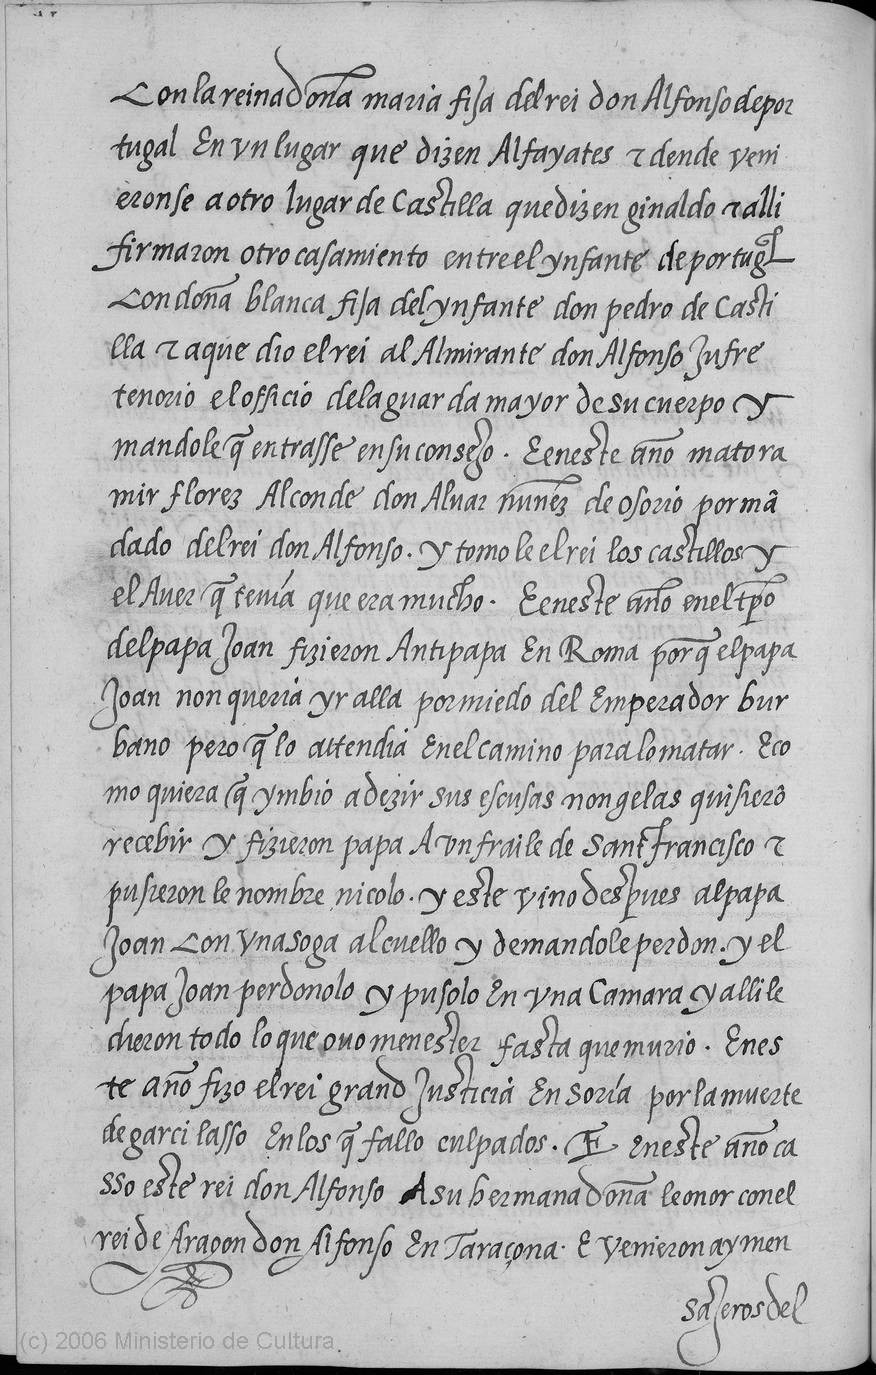 Con la reina doña maria fija del rei don Alfonso de por
tugal En vn lugar que dizen Alfayates τ dende veni
eronse a otro lugar de Castilla que dizen ginaldo τ alli
firmaron otro casamiento entre el ynfante de portugl
Con doña blanca fija del ynfante don pedro de Casti
lla τ aque dio el rei al Almirante don Alfonso Jufre
tenorio el officio de la guarda mayor de su cuerpo Y
mandole q̃ entrasse en su consejo. E eneste año mato ra
mir florez Al conde don Aluar nuñez de osorio por mã
dado del rei don Alfonso. Y tomo le el rei los castillos y
el Auer q̃ tenía que era mucho. E eneste año enel tp̃o
del papa Joan fizieron Antipapa En Roma porq̃ el papa
Joan non queria yr alla por miedo del Emperador bur
bano pero q̃ lo attendia Enel camino para lo matar. E co
mo quiera q̃ ymbio a dezir sus escusas non gelas quisierõ
recebir y fizieron papa A vn fraile de Sant francisco τ
pusieron le nombre nicolo. Y este vino despues al papa
Joan Con vna soga al cuello y demandole perdon. y el
papa Joan perdonolo y pusolo En vna Camara y alli le
dieron todo lo que ouo menester fasta que murio. Enes
te año fizo el rei grand Justicia En Soría por la muerte
de garci lasso En los q̃ fallo culpados. E eneste año ca
sso este rei don Alfonso A su hermana doña leonor con el
rei de Aragon don Alfonso En Taraçona. E venieron ay men
sajeros del
(c) 2006 Ministerio de Cultura